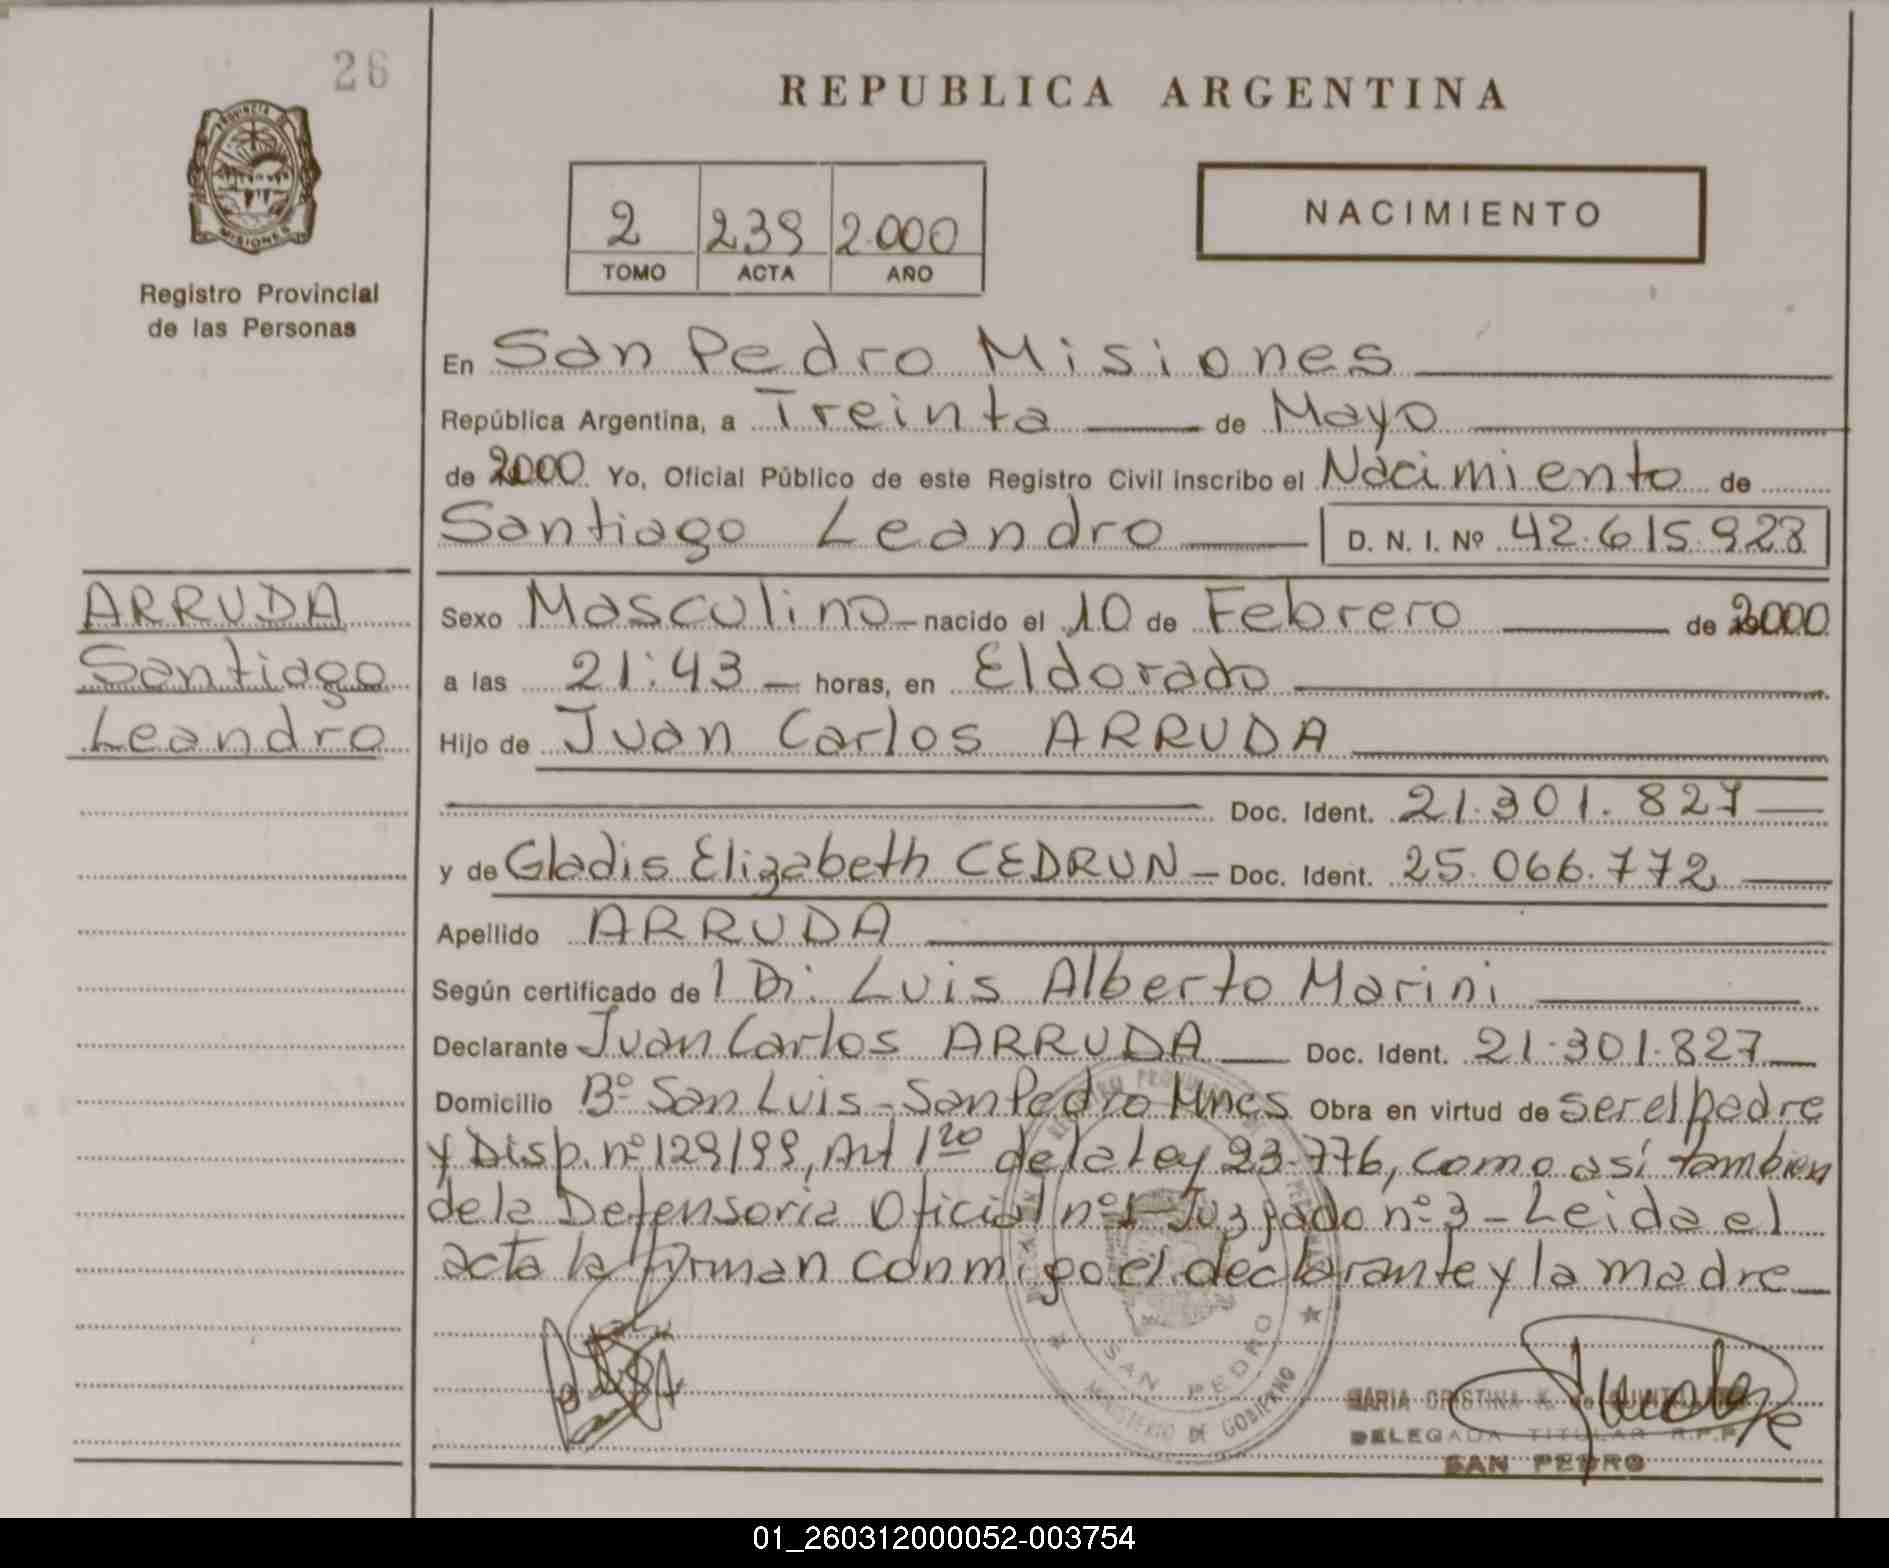 26
REPUBLICA ARGENTINA
PROVINCIA DE
MISIONES
Registro Provincial
de las Personas
2 239 2.000
TOMO ACTA AÑO
NACIMIENTO
En San Pedro Misiones
República Argentina, a Treinta de Mayo
de 2000 Yo, Oficial Público de este Registro Civil inscribo el Nacimiento de
Santiago Leandro D. N. I. Nº 42.615.928
ARRUDA
Santiago
Leandro
Sexo Masculino nacido el 10 de Febrero de 2000
a las 21:43 horas, en Eldorado
Hijo de Juan Carlos ARRUDA
Doc. Ident. 21.301.827
y de Gladis Elizabeth CEDRUN Doc. Ident. 25.066.772
Apellido ARRUDA
Según certificado de l Dr. Luis Alberto Marini
Declarante Juan Carlos ARRUDA Doc. Ident. 21.301.827
Domicilio Bº San Luis - San Pedro Mnes Obra en virtud de ser el padre
y Disp. nº 129/99, Art 1ro de la Ley 23.776, como así tambien
de la Defensoria Oficial nº1 Juzgado nº 3 - Leida el
acta la firman conmigo el declarante y la madre
SAN PEDRO
MINISTERIO DE GOBIERNO
MARIA CRISTINA K. de
DELEGADA TITULAR R.P.P.
SAN PEDRO
01_260312000052-003754